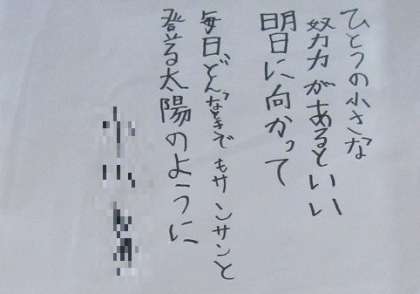 ひとつの小さな
努力があるといい
明日に向かって
毎日どんなときでもサンサンと
登る太陽のように